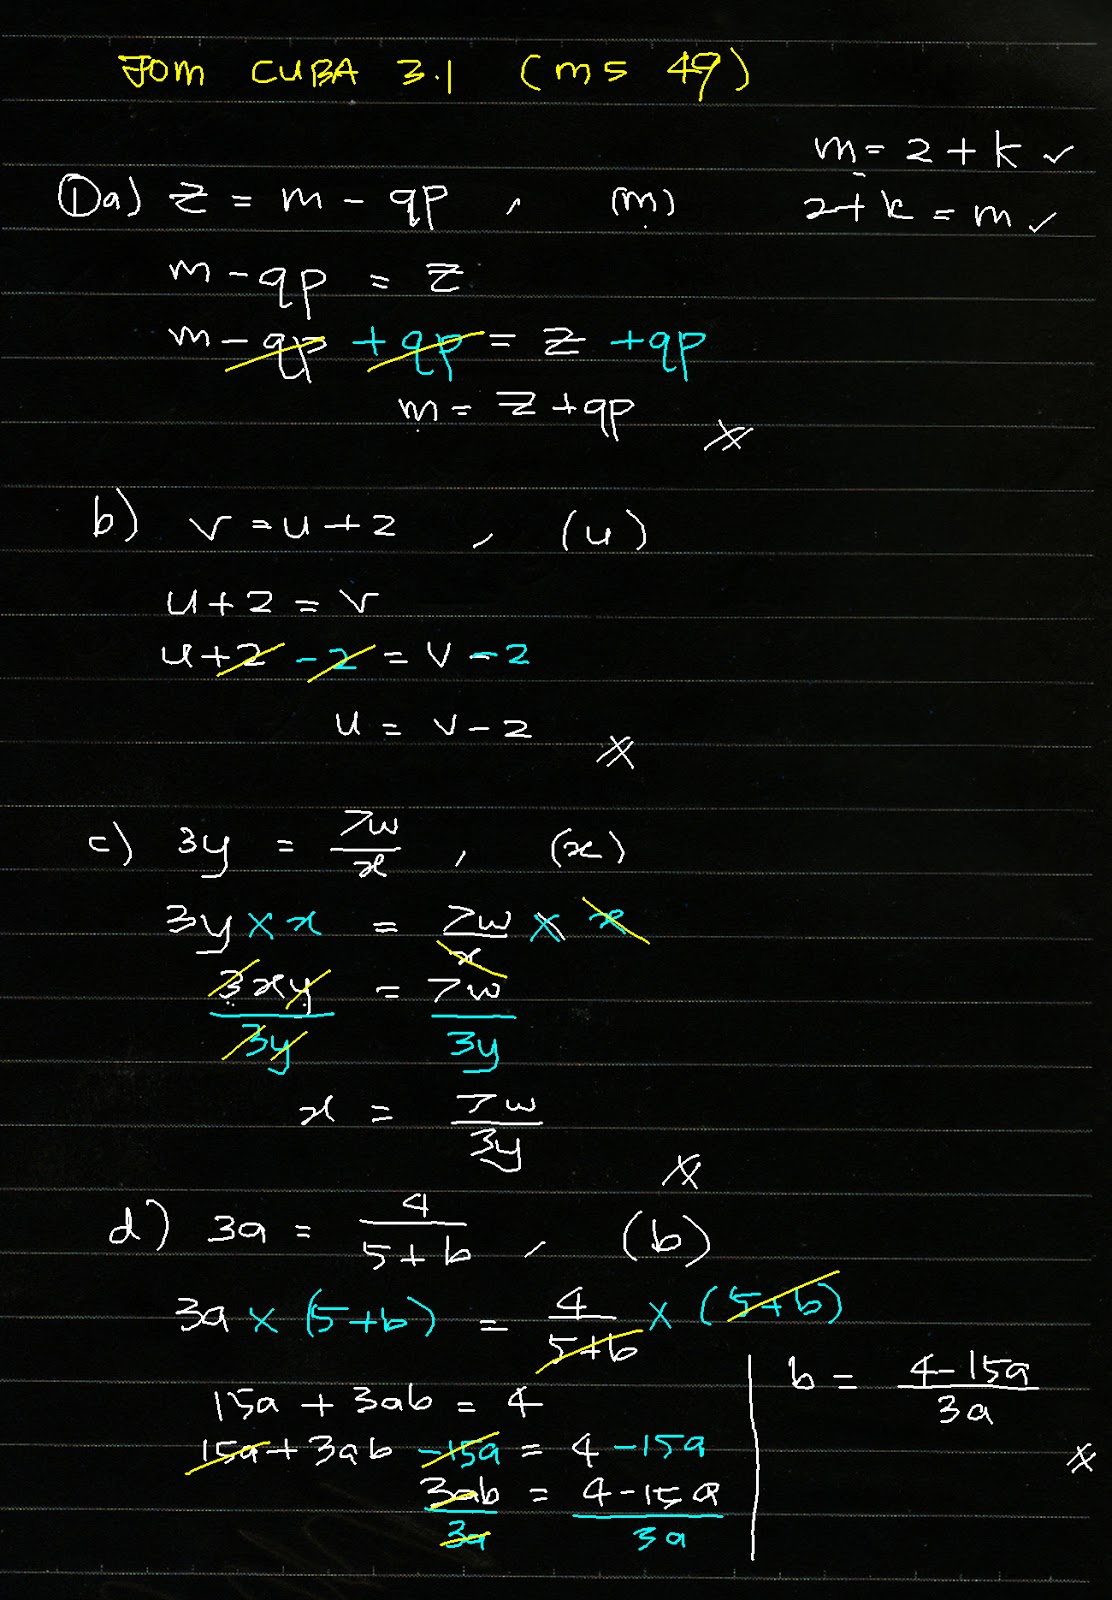 Jom CUBA 3.1 (ms 49)
m = 2 + k ✓
2 + k = m ✓
①a) z = m - qp , (m)
m - qp = z
m - qp + qp = z + qp
m = z + qp
b) v = u + 2 , (u)
u + 2 = v
u + 2 - 2 = v - 2
u = v - 2
c) 3y = 7w/x , (x)
3y × x = 7w/x × x
3xy/3y = 7w/3y
x = 7w/3y
d) 3a = 4/(5 + b) , (b)
3a × (5 + b) = 4/(5 + b) × (5 + b)
15a + 3ab = 4
15a + 3ab - 15a = 4 - 15a
3ab/3a = (4 - 15a)/3a
b = (4 - 15a)/3a